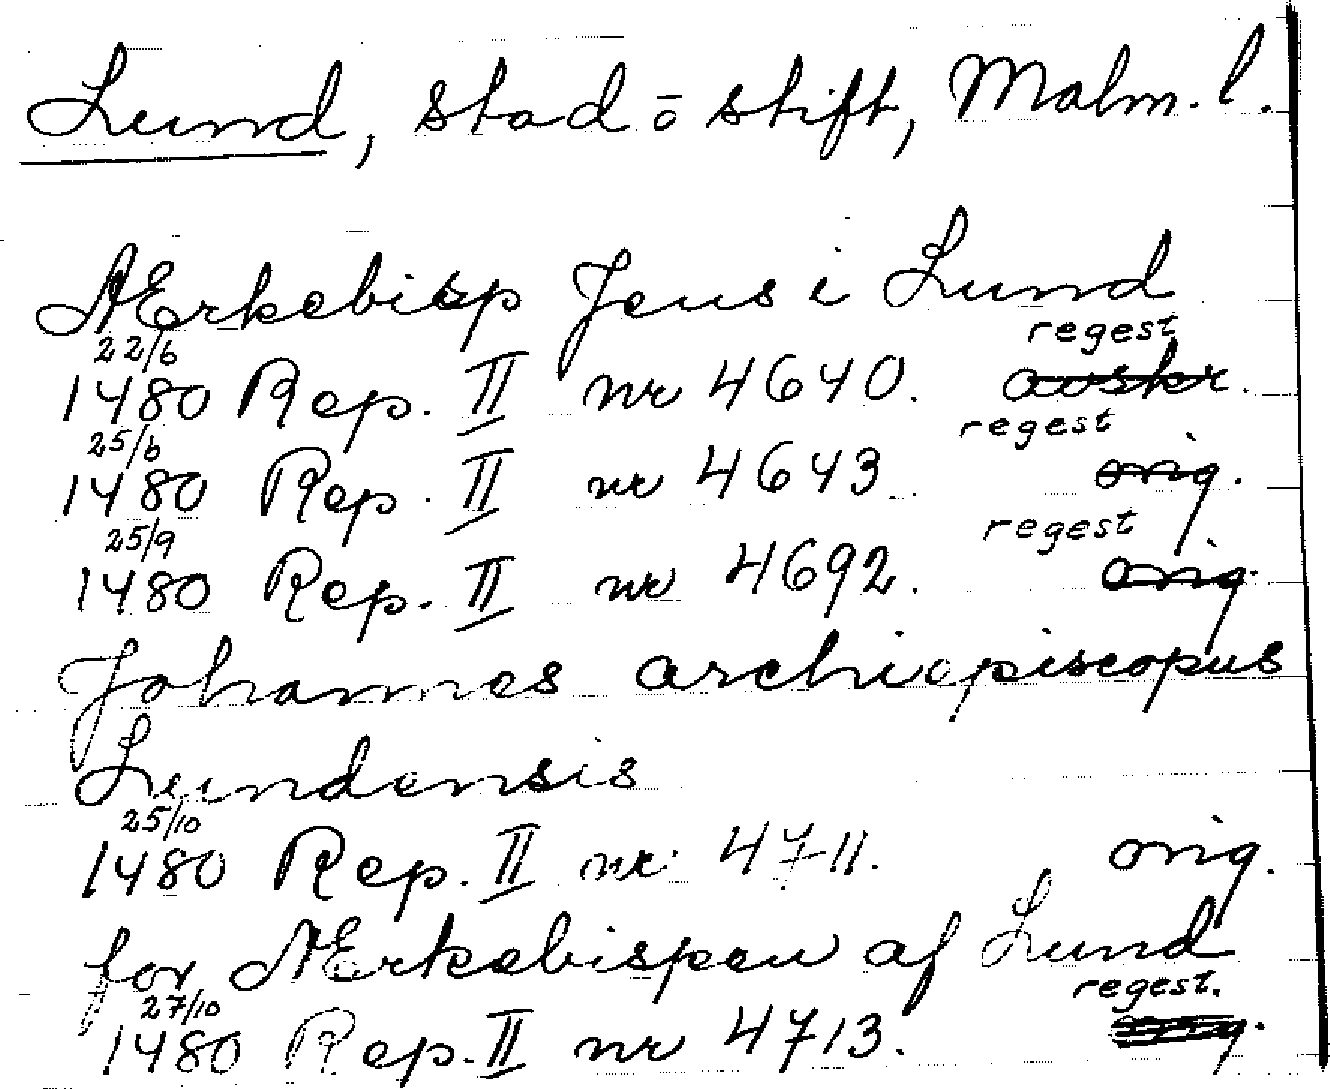 Lund, stad ō stift, Malm. l.
Ærkebisp Jens i Lund
22/6 regest
1480 Rep. II nr 4640. avskr.
25/6 regest
1480 Rep. II nr 4643. orig.
25/9 regest
1480 Rep. II nr 4692. orig.
Johannes archiepiscopus
Lundensis
25/10
1480 Rep. II nr 4711. orig.
for Ærkebispen af Lund
27/10 regest.
1480 Rep. II nr 4713. orig.